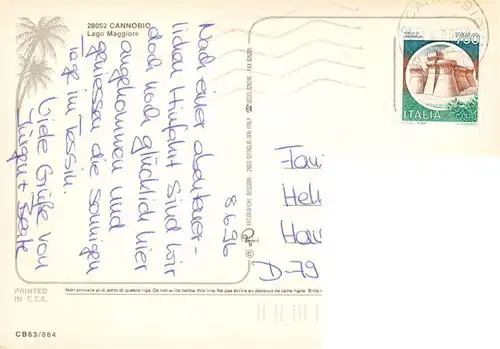 28052 CANNOBIO
Lago Maggiore
8.6.96
Nach einer abenteuer-
lichen Hinfahrt sind wir
doch noch glücklich hier
angekommen und
geniessen die sonnigen
Tage im Tessin.
Viele Grüße von
Jürgen + Beate
Fam
Hel
Hau
D-79
750
ITALIA
CANNOBIO
PRINTED
IN C.E.E.
Non scrivere al di sotto di questa riga. Do not write below this line. Ne pas écrire au-dessous de cette ligne.
CB63/884